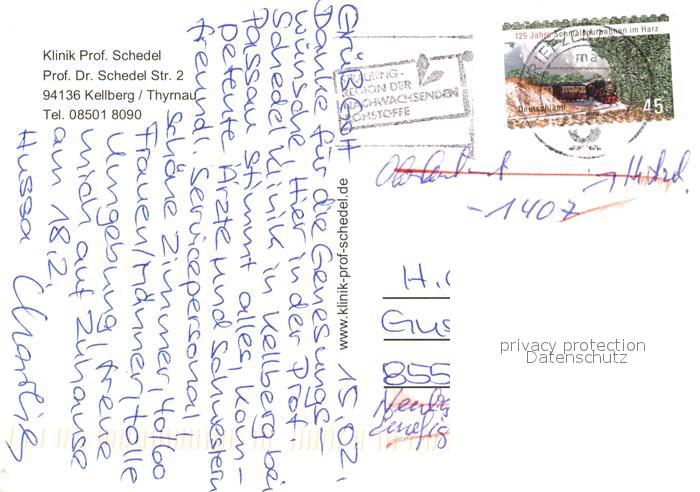 Klinik Prof. Schedel
Prof. Dr. Schedel Str. 2
94136 Kellberg / Thyrnau
Tel. 08501 8090
Grüß Gott 15.02.
Danke für die Genesungs-
wünsche. Hier in der Prof.
Schedel Klinik in Kellberg bei
Passau stimmt alles, kom-
petente Ärzte und Schwestern
freundl. Servicepersonal
schöne Zimmer, tolle
Frauen/Männer, tolle
Umgebung! Freue
mich auf Zuhause
am 18.2.
Hussa
www.klinik-prof-schedel.de
STRAUBING -
REGION DER
NACHWACHSENDEN
ROHSTOFFE
BRIEFZE
125 Jahre Schmalspurbahnen im Harz
Deutschland
45
-1407
H.
Gus
855
privacy protection
Datenschutz